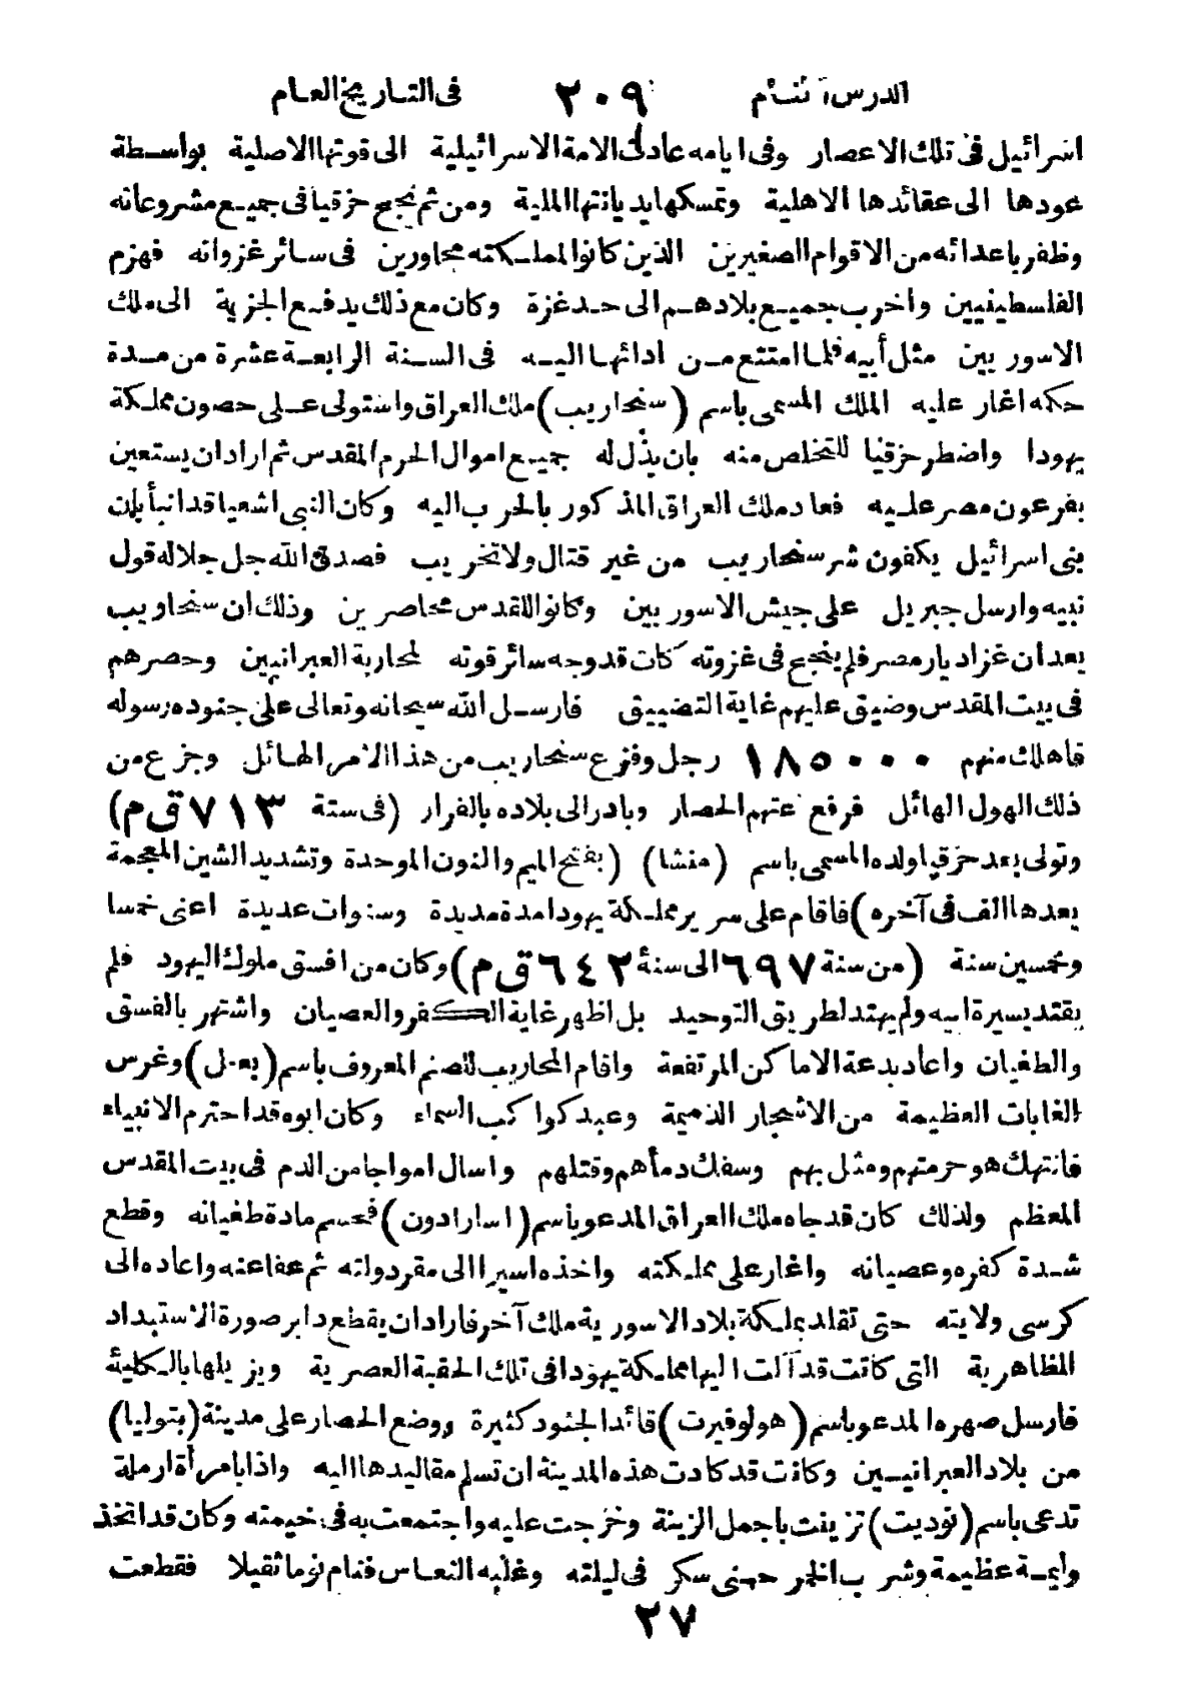 الدرس التام ٢٠٩ فى التاريخ العام
اسرائيل فى تلك الاعصار وفى ايامه عادت الامة الاسرائيلية الى قوتها الاصلية بواسطة
عودها الى عقائدها الاهلية وتمسكها بديانتها الملية ومن ثم نجح حزقيا فى جميع مشروعاته
وظفر باعدائه من الاقوام الصغيرين الذين كانوا لمملكته مجاورين فى سائر غزواته فهزم
الفلسطينيين واخرب جميع بلادهم الى حد غزة وكان مع ذلك يدفع الجزية الى ملك
الاسوريين مثل أبيه فلما امتنع من ادائها اليه فى السنة الرابعة عشرة من مدة
حكمه اغار عليه الملك المسمى باسم (سنحاريب) ملك العراق واستولى على حصون مملكة
يهودا واضطر حزقيا للتخلص منه بان بذل له جميع اموال الحرم المقدس ثم اراد ان يستعين
بفرعون مصر عليه فعاد ملك العراق المذكور بالحرب اليه وكان النبى اشعيا قد انبأ بان
بنى اسرائيل يكفون شر سنحاريب من غير قتال ولا تخريب فصدق الله جل جلاله قول
نبيه وارسل جبريل على جيش الاسوريين وكانوا للقدس محاصرين وذلك ان سنحاريب
بعد ان غزا ديار مصر فلم ينجح فى غزوته كان قد وجه سائر قوته لمحاربة العبرانيين وحصرهم
فى بيت المقدس وضيق عليهم غاية التضييق فارسل الله سبحانه وتعالى على جنوده رسوله
فاهلك منهم ١٨٥٠٠٠ رجل وفزع سنحاريب من هذا الامر الهائل وجزع من
ذلك الهول الهائل فرفع عنهم الحصار وبادر الى بلاده بالفرار (فى سنة ٧١٣ ق م)
وتولى بعد حزقيا ولده المسمى باسم (منشا) (بفتح الميم والنون الموحدة وتشديد الشين المعجمة
بعدها الف فى آخره) فاقام على سرير مملكة يهودا مدة مديدة وسنوات عديدة اعنى خمسا
وخمسين سنة (من سنة ٦٩٧ الى سنة ٦٤٢ ق م) وكان من افسق ملوك اليهود فلم
يقتد بسيرة ابيه ولم يهتد لطريق التوحيد بل اظهر غاية الكفر والعصيان واشتهر بالفسق
والطغيان واعاد بدعة الاماكن المرتفعة واقام المحاريب للصنم المعروف باسم (بعل) وغرس
الغابات العظيمة من الاشجار الذميمة وعبد كواكب السماء وكان ابوه قد احترم الانبياء
فانتهك هو حرمتهم ومثل بهم وسفك دمأهم وقتلهم واسال امواجا من الدم فى بيت المقدس
المعظم ولذلك كان قد جاه ملك العراق المدعو باسم (اسارادون) فحسم مادة طغيانه وقطع
شدة كفره وعصيانه واغار على مملكته واخذه اسيرا الى مقر دولته ثم عفا عنه واعاده الى
كرسى ولايته حتى تقلد بمملكة بلاد الاسورية ملك آخر فاراد ان يقطع دابر صورة الاستبداد
الظاهرية التى كانت قد آلت اليها مملكة يهودا فى تلك الحقبة العصرية ويزيلها بالكلية
فارسل صهره المدعو باسم (هولوفيرت) قائدا لجنود كثيرة ووضع الحصار على مدينة (بتوليا)
من بلاد العبرانيين وكانت قد كادت هذه المدينة ان تسلم مقاليدها اليه واذا بامرأة ارملة
تدعى باسم (نوديت) تزينت باجمل الزينة وخرجت عليه واجتمعت به فى خيمته وكان قد اتخذ
وليمة عظيمة وشرب الخمر حتى سكر فى ليلته وغلبه النعاس فنام نوما ثقيلا فقطعت
٢٧